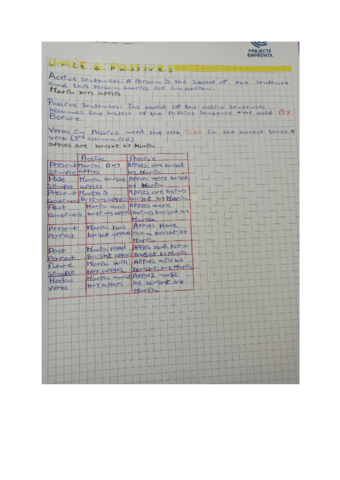 PROJECTE
EMPRENTA
UNIT 6: PASSIVES
Active Sentences: A Person is the subject of the sentence
and this Person carries out
Maria buys apples
Passive Sentences: The object of the active sentence
becomes the subject of the passive sentence. We add BY
Before.
Verbs in Passive need the verb To be in the correct tense +
verb (3rd column/ed)
apples are bought by Maria.
Active Passive
Present Maria buys Apples are bought
Simple apples by Maria
Past Maria bought Apples were bought
Simple apples by Maria
Present Maria is Apples are being
Continuous buying apples bought by Maria
Past Maria was Apples were
Continuous buying apples being bought by
Maria
Present Maria has Apples have
Perfect bought apples been bought by
Maria
Past Maria Had Apples had been
Perfect bought apples bought by Maria
Future Maria will Apples will be
Simple buy apples bought by Maria
Modal Maria must Apples must
Verbs buy apples be bought by
Maria